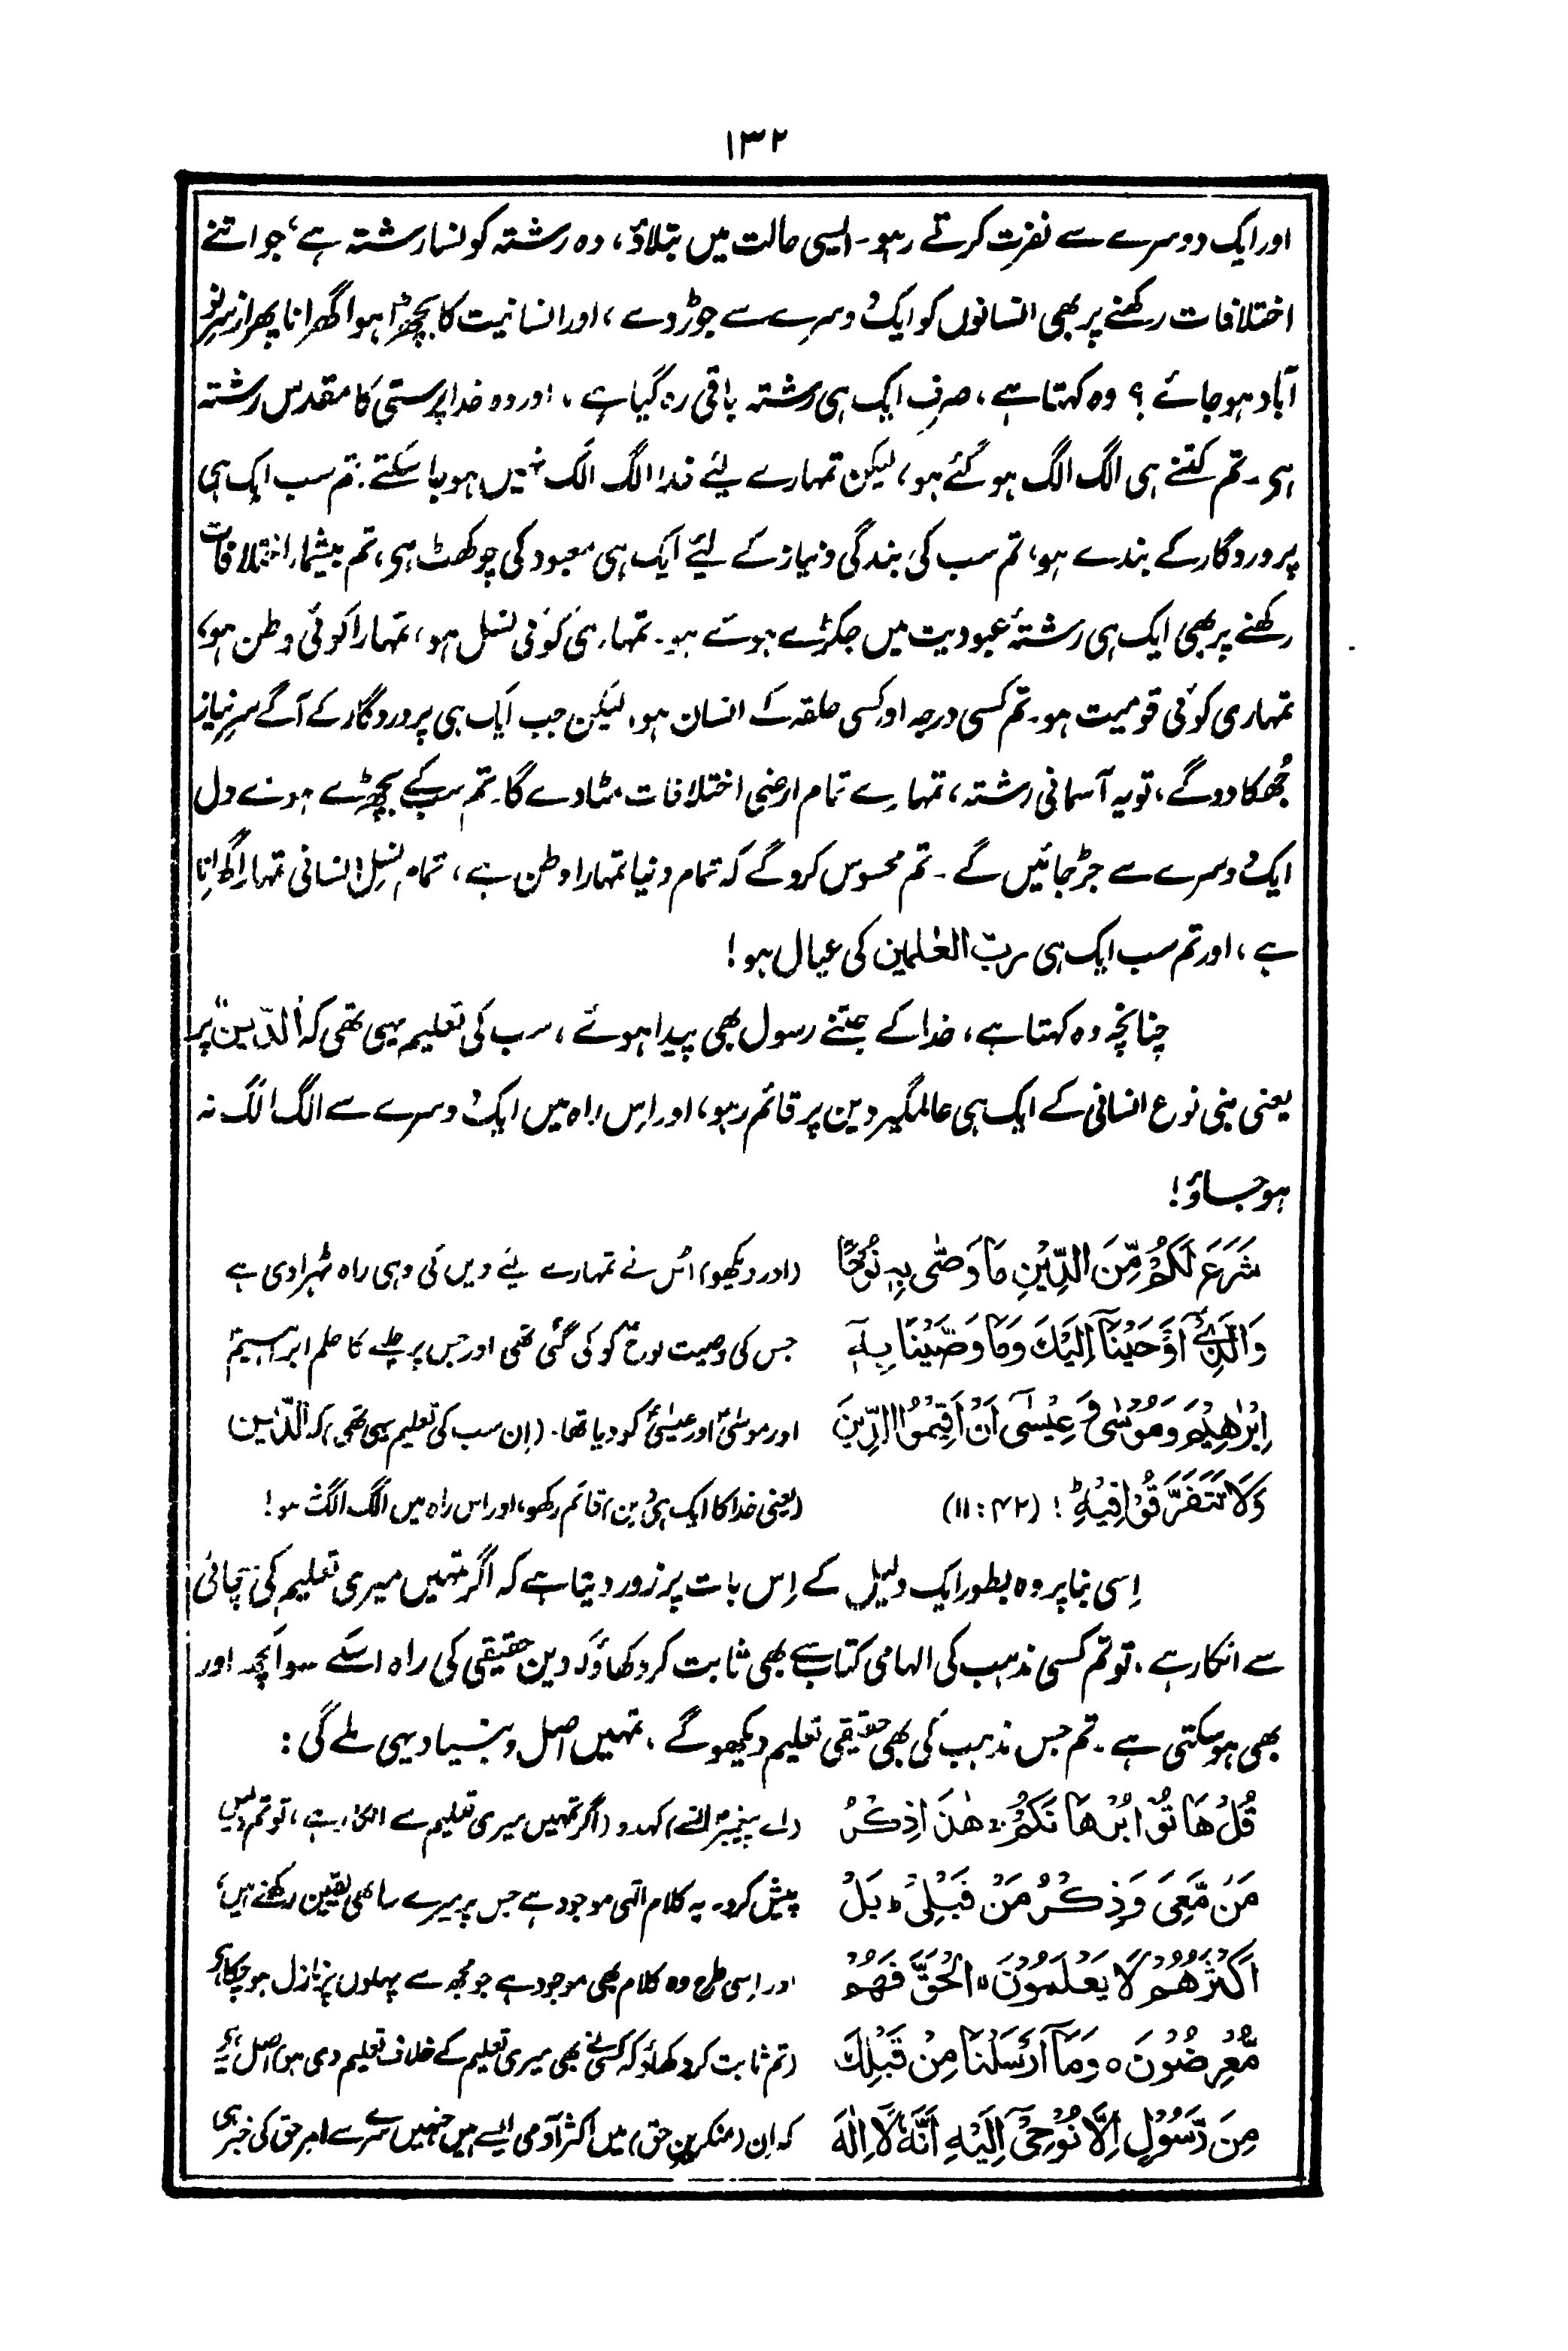 ۱۳۲
اور ایک دوسرے سے نفرت کرتے رہو۔ ایسی حالت میں بتلاؤ، وہ رشتہ کونسا رشتہ ہے، جو اتنے
اختلافات رکھنے پر بھی انسانوں کو ایک دوسرے سے جوڑ دے، اور انسانیت کا بچھڑا ہوا گھرانا پھر ازسرِنو
آباد ہوجائے؟ وہ کہتا ہے، صرف ایک ہی رشتہ باقی رہ گیا ہے، اور وہ خدا پرستی کا مقدس رشتہ
ہی۔ تم کتنے ہی الگ الگ ہوگئے ہو، لیکن تمہارے لیئے خدا الگ الگ نہیں ہو جا سکتے۔ تم سب ایک ہی
پروردگار کے بندے ہو، تم سب کی بندگی و نیاز کے لیئے ایک ہی معبود کی چوکھٹ ہی، تم بیشمار اختلافات
رکھنے پر بھی ایک ہی رشتۂ عبودیت میں جکڑے ہوئے ہو۔ تمہاری کوئی نسل ہو، تمہارا کوئی وطن ہو،
تمہاری کوئی قومیت ہو۔ تم کسی درجہ اور کسی حلقہ کے انسان ہو، لیکن جب ایک ہی پروردگار کے آگے سرِ نیاز
جُھکا دوگے، تو یہ آسمانی رشتہ، تمہارے تمام ارضی اختلافات مٹا دے گا۔ تم سب کے بچھڑے ہوئے دل
ایک دوسرے سے جڑجائیں گے۔ تم محسوس کروگے کہ تمام دنیا تمہارا وطن ہے، تمام نسلِ انسانی تمہارا گھرانا
ہے، اور تم سب ایک ہی ربّ العٰلمین کی عیال ہو!
چنانچہ وہ کہتا ہے، خدا کے جتنے رسول بھی پیدا ہوئے، سب کی تعلیم یہی تھی کہ "الدّین" پر
یعنی بنی نوع انسانی کے ایک ہی عالمگیر دین پر قائم رہو، اور اِس راہ میں ایک دوسرے سے الگ الگ نہ
ہوجاؤ!
شَرَعَ لَكُمْ مِّنَ الدِّيْنِ مَا وَصّٰى بِهٖ نُوْحًا (اور دیکھو) اُس نے تمہارے لیئے دین کی وہی راہ ٹہرا دی ہے
وَالَّذِيْٓ اَوْحَيْنَآ اِلَيْكَ وَمَا وَصَّيْنَا بِهٖٓ جس کی وصیت نوحؑ کو کی گئی تھی اور جس پر چلنے کا حکم ابراہیمؑ
اِبْرٰهِيْمَ وَمُوْسٰى وَ عِيْسٰٓى اَنْ اَقِيْمُوا الدِّيْنَ اور موسیٰؑ اور عیسیٰؑ کو دیا تھا۔ (اِن سب کی تعلیم یہی تھی) کہ الدّین
وَلَا تَتَفَرَّقُوْا فِيْهِ ؕ ! (۴۲ : ۱۱) (یعنی خدا کا ایک ہی دین) قائم رکھو، اور اس راہ میں الگ الگ نہ ہو!
اِسی بنا پر وہ بطور ایک دلیل کے اِس بات پر زور دیتا ہے کہ اگر تمہیں میری تعلیم کی سچائی
سے انکار ہے، تو تم کسی مذہب کی الہامی کتاب سے بھی ثابت کر دکھاؤ کہ دین حقیقی کی راہ اسکے سوا کچھ اور
بھی ہوسکتی ہے۔ تم جس مذہب کی بھی حقیقی تعلیم دیکھوگے، تمہیں اصل و بنیاد یہی ملے گی:
قُلْ هَاتُوْا بُرْهَانَكُمْ ۚ هٰذَا ذِكْرُ (اے پیغمبر ان سے) کہدو (اگر تمہیں میری تعلیم سے انکار ہے، تو تم دلیل
مَنْ مَّعِىَ وَذِكْرُ مَنْ قَبْلِىْ ؕ بَلْ پیش کرو۔ یہ کلام الٰہی موجود ہے جس پر میرے ساتھی یقین رکھتے ہیں،
اَكْثَرُهُمْ لَا يَعْلَمُوْنَ ۙ الْحَقَّ فَهُمْ اور اِسی طرح وہ کلام بھی موجود ہے جو مجھ سے پہلوں پر نازل ہوچکا ہی
مُّعْرِضُوْنَ ه وَمَآ اَرْسَلْنَا مِنْ قَبْلِكَ (تم ثابت کر دکھاؤ کہ کسی نے بھی میری تعلیم کے خلاف تعلیم دی ہو) اصل یہ ہی
مِنْ رَّسُوْلٍ اِلَّا نُوْحِىْٓ اِلَيْهِ اَنَّهٗ لَآ اِلٰهَ کہ اِن (منکرین حق) میں اکثر آدمی ایسے ہیں جنہیں سرے سے امر حق کی خبر ہی